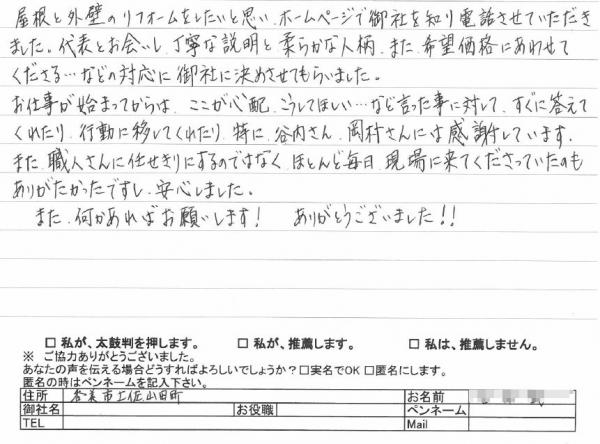 屋根と外壁のリフォームをしたいと思い、ホームページで御社を知り電話させていただき
ました。代表とお会いし、丁寧な説明と柔らかな人柄、また、希望価格にあわせて
くださる…などの対応に御社に決めさせてもらいました。
お仕事が始まってからは、ここが心配、こうしてほしい…など言った事に対して、すぐに答えて
くれたり、行動に移してくれたり、特に、谷内さん、岡村さんには感謝しています。
また、職人さんに任せきりにするのではなく、ほとんど毎日、現場に来てくださっていたのも
ありがたかったですし、安心しました。
また、何かあればお願いします! ありがとうございました!!
□ 私が、太鼓判を押します。 □ 私が、推薦します。 □ 私は、推薦しません。
※ ご協力ありがとうございました。
あなたの声を伝える場合どうすればよろしいでしょうか?□実名でOK □匿名にします。
匿名の時はペンネームを記入下さい。
住所 香美市土佐山田町 お名前
御社名 お役職 ペンネーム
TEL Mail